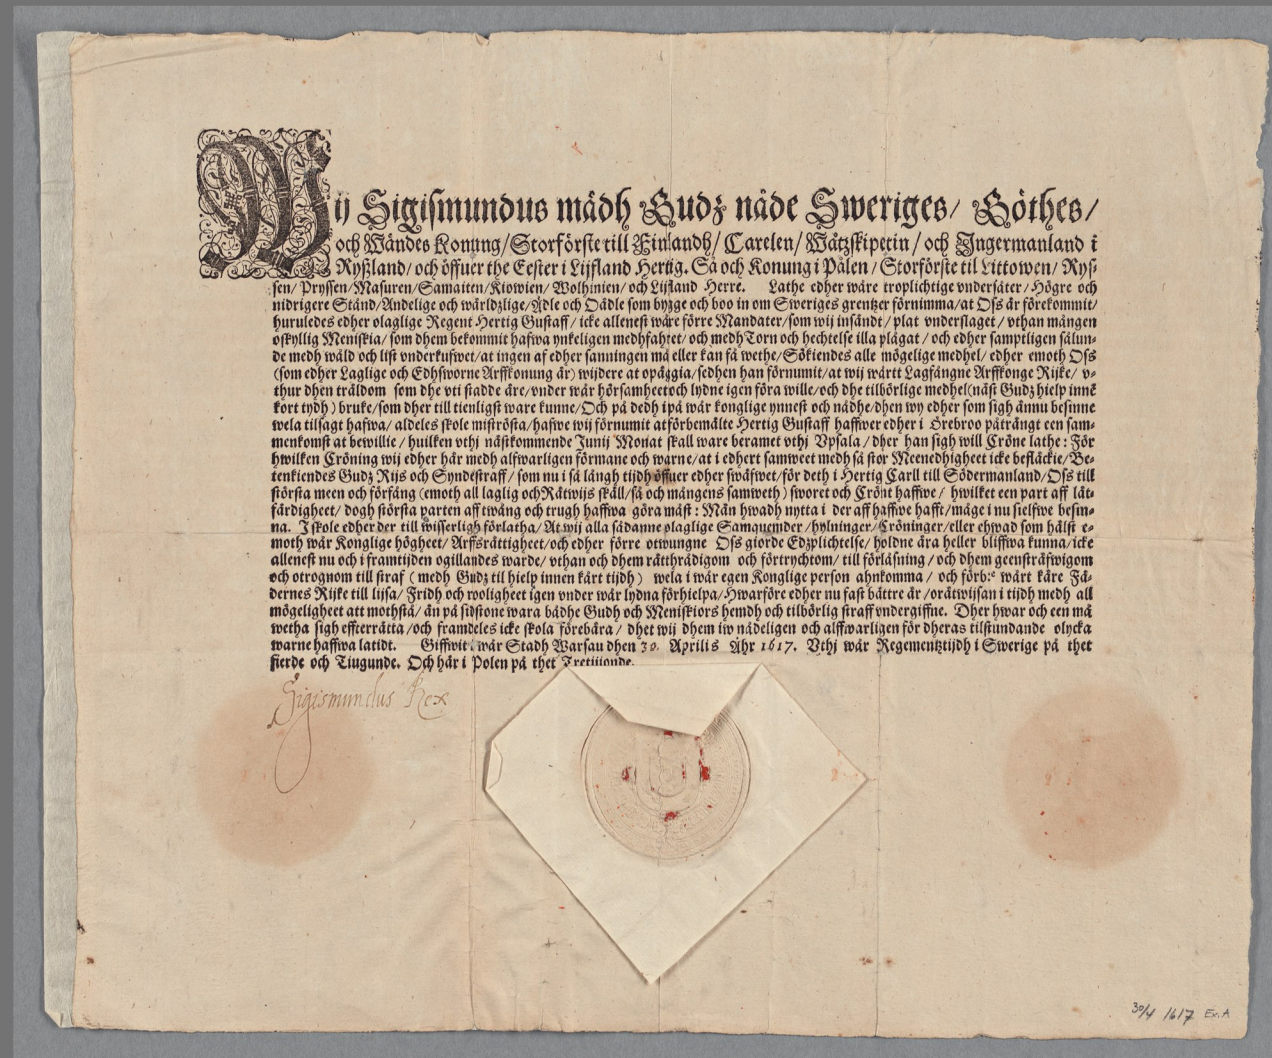 Wij Sigismundus mädh Gudz nåde Sweriges/ Göthes/
och Wändes Konung/Storförste till Finlandh/ Carelen/ Wåtzskipetin/ och Ingermanland i
Ryßland/ och öffuer the Eester i Lijfland Hertig. Så och Konung i Pålen/ Storförste til Littowen/ Rys-
sen/ Pryssen/ Masuren/ Samaiten/ Kiowien/ Wolhinien/ och Lijfland Herre. Lathe edher wäre troplichtige vndersåter/ Högre och
nidrigere Stånd/ Andelige och wärldzlige/ Ädle och Oädle som bygge och boo in om Sweriges grentzer förnimma/ at Oss är förekommit/
huruledes edher olaglige Regent Hertig Gustaff/ icke allenest wåre förre Mandater/ som wij insändt/ plat vnderslaget/ vthan mången
oskyllig Meniskia/ som dhem bekommit hafwa ynkeligen medhfahret/ och medh Torn och hechtelse illa plågat/ och edher samptligen sålun-
de medh wåld och list vnderkufwet/ at ingen af edher sanningen må eller kan få wethe/ Sökiendes alle mögelige medhel/ edher emoth Oss
(som edher Laglige och Edhsworne Arffkonung är) wijdere at opäggia/ sedhen han förnumit/ at wij wårtt Lagfångne Arffkonge Rijke/ v-
thur dhen träldom som dhe vti stadde äre/ vnder wår hörsamheet och lydne igen föra wille/ och dhe tilbörlige medhel (näst Gudz hielp innē
kort tydh) bruke/ som dher till tienligst ware kunne/ Och på dedh i på wår konglige ynnest och nådhe/ dhen wy edher som sigh ännu besinne
wela tilsagt hafwa/ aldeles skole miströsta/ hafwe wij förnumit at förbemälte Hertig Gustaff haffwer edher i Örebroo påträngt een sam-
menkomst at bewillie/ huilken vthj nästkommende Junij Monat skall ware beramet vthj Vpsala/ dher han sigh will Cröne lathe: För
hwilken Cröning wij edher här medh alfwarligen förmane och warne/ at i edhert samweet medh så stor Meenedhigheet icke befläckie/ Be-
tenkiendes Gudz Rijs och Syndestraff/ som nu i så långh tijdh öffuer edher swäfwet/ för deth i Hertig Carll till Södermanland/ Oss till
största meen och förfång (emoth all laglig och Rätwijs skäll/ så och mångens samweth) sworet och Crönt haffwe/ hwilket een part aff lät-
färdigheet/ dogh största parten aff twång och trugh haffwa göra måst: Män hwadh nytta i der aff haffwe hafft/ måge i nu sielfwe besin-
na. I skole edher der till wisserligh förlatha/ At wij alla sådanne olaglige Samquemder/ hylninger/ Cröninger/ eller ehwad som hälst e-
moth wår Konglige högheet/ Arffsrättigheet/ och edher förre otwungne Oss giorde Edzplichtelse/ holdne ära heller bliffwa kunna/ icke
allenest nu och i framtijden ogillandes warde/ vthan och dhem rätthrädigom och förtrychtom/ till förlåsning/ och dhem geensträfwigom
och otrognom till straf (medh Gudz til hielp innen kårt tijdh) wela i wår egen Konglige person ahnkomma/ och förb:e wårt käre Fä-
dernes Rijke till lijsa/ Fridh och rooligheet igen vnder wår lydna förhielpa/ Hwarföre edher nu fast bättre är/ orätwijsan i tijdh medh all
mögeligheet att mothstå/ än på sidstone wara bådhe Gudh och Meniskiors hemdh och tilbörlig straff vndergiffne. Dher hwar och een må
wetha sigh effterrätta/ och framdeles icke skola förebära/ dhet wij dhem iw nådeligen och alffwarligen för dheras tilstundande olycka
warne haffwa latidt. Giffwit i wår Stadh Warsau dhen 30. Aprilis Åhr 1617. Vthj wår Regementztijdh i Swerige på thet
fierde och Tiugunde. Och här i Polen på thet Tretijonde.
Sigismundus Rex
30/4 1617 Ex. A